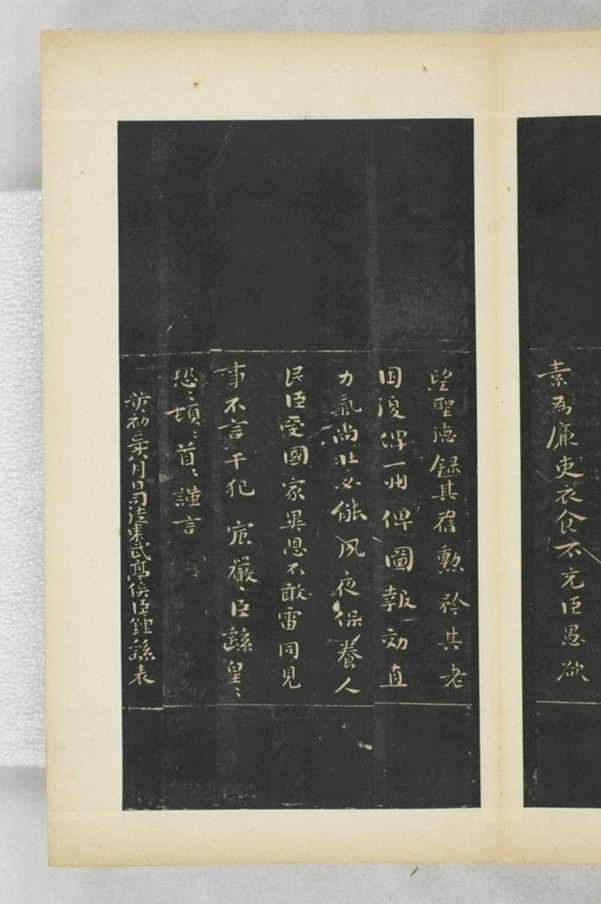 素為廉吏衣食不充臣愚欲
望聖德錄其舊勳矜其老
困復俾一州俾圖報効直
力氣尚壯必能夙夜保養人
民臣受國家異恩不敢雷同見
事不言干犯宸嚴臣繇皇〻
恐〻頓〻首〻謹言
黃初二年八月日司徒東武亭侯臣鍾繇表